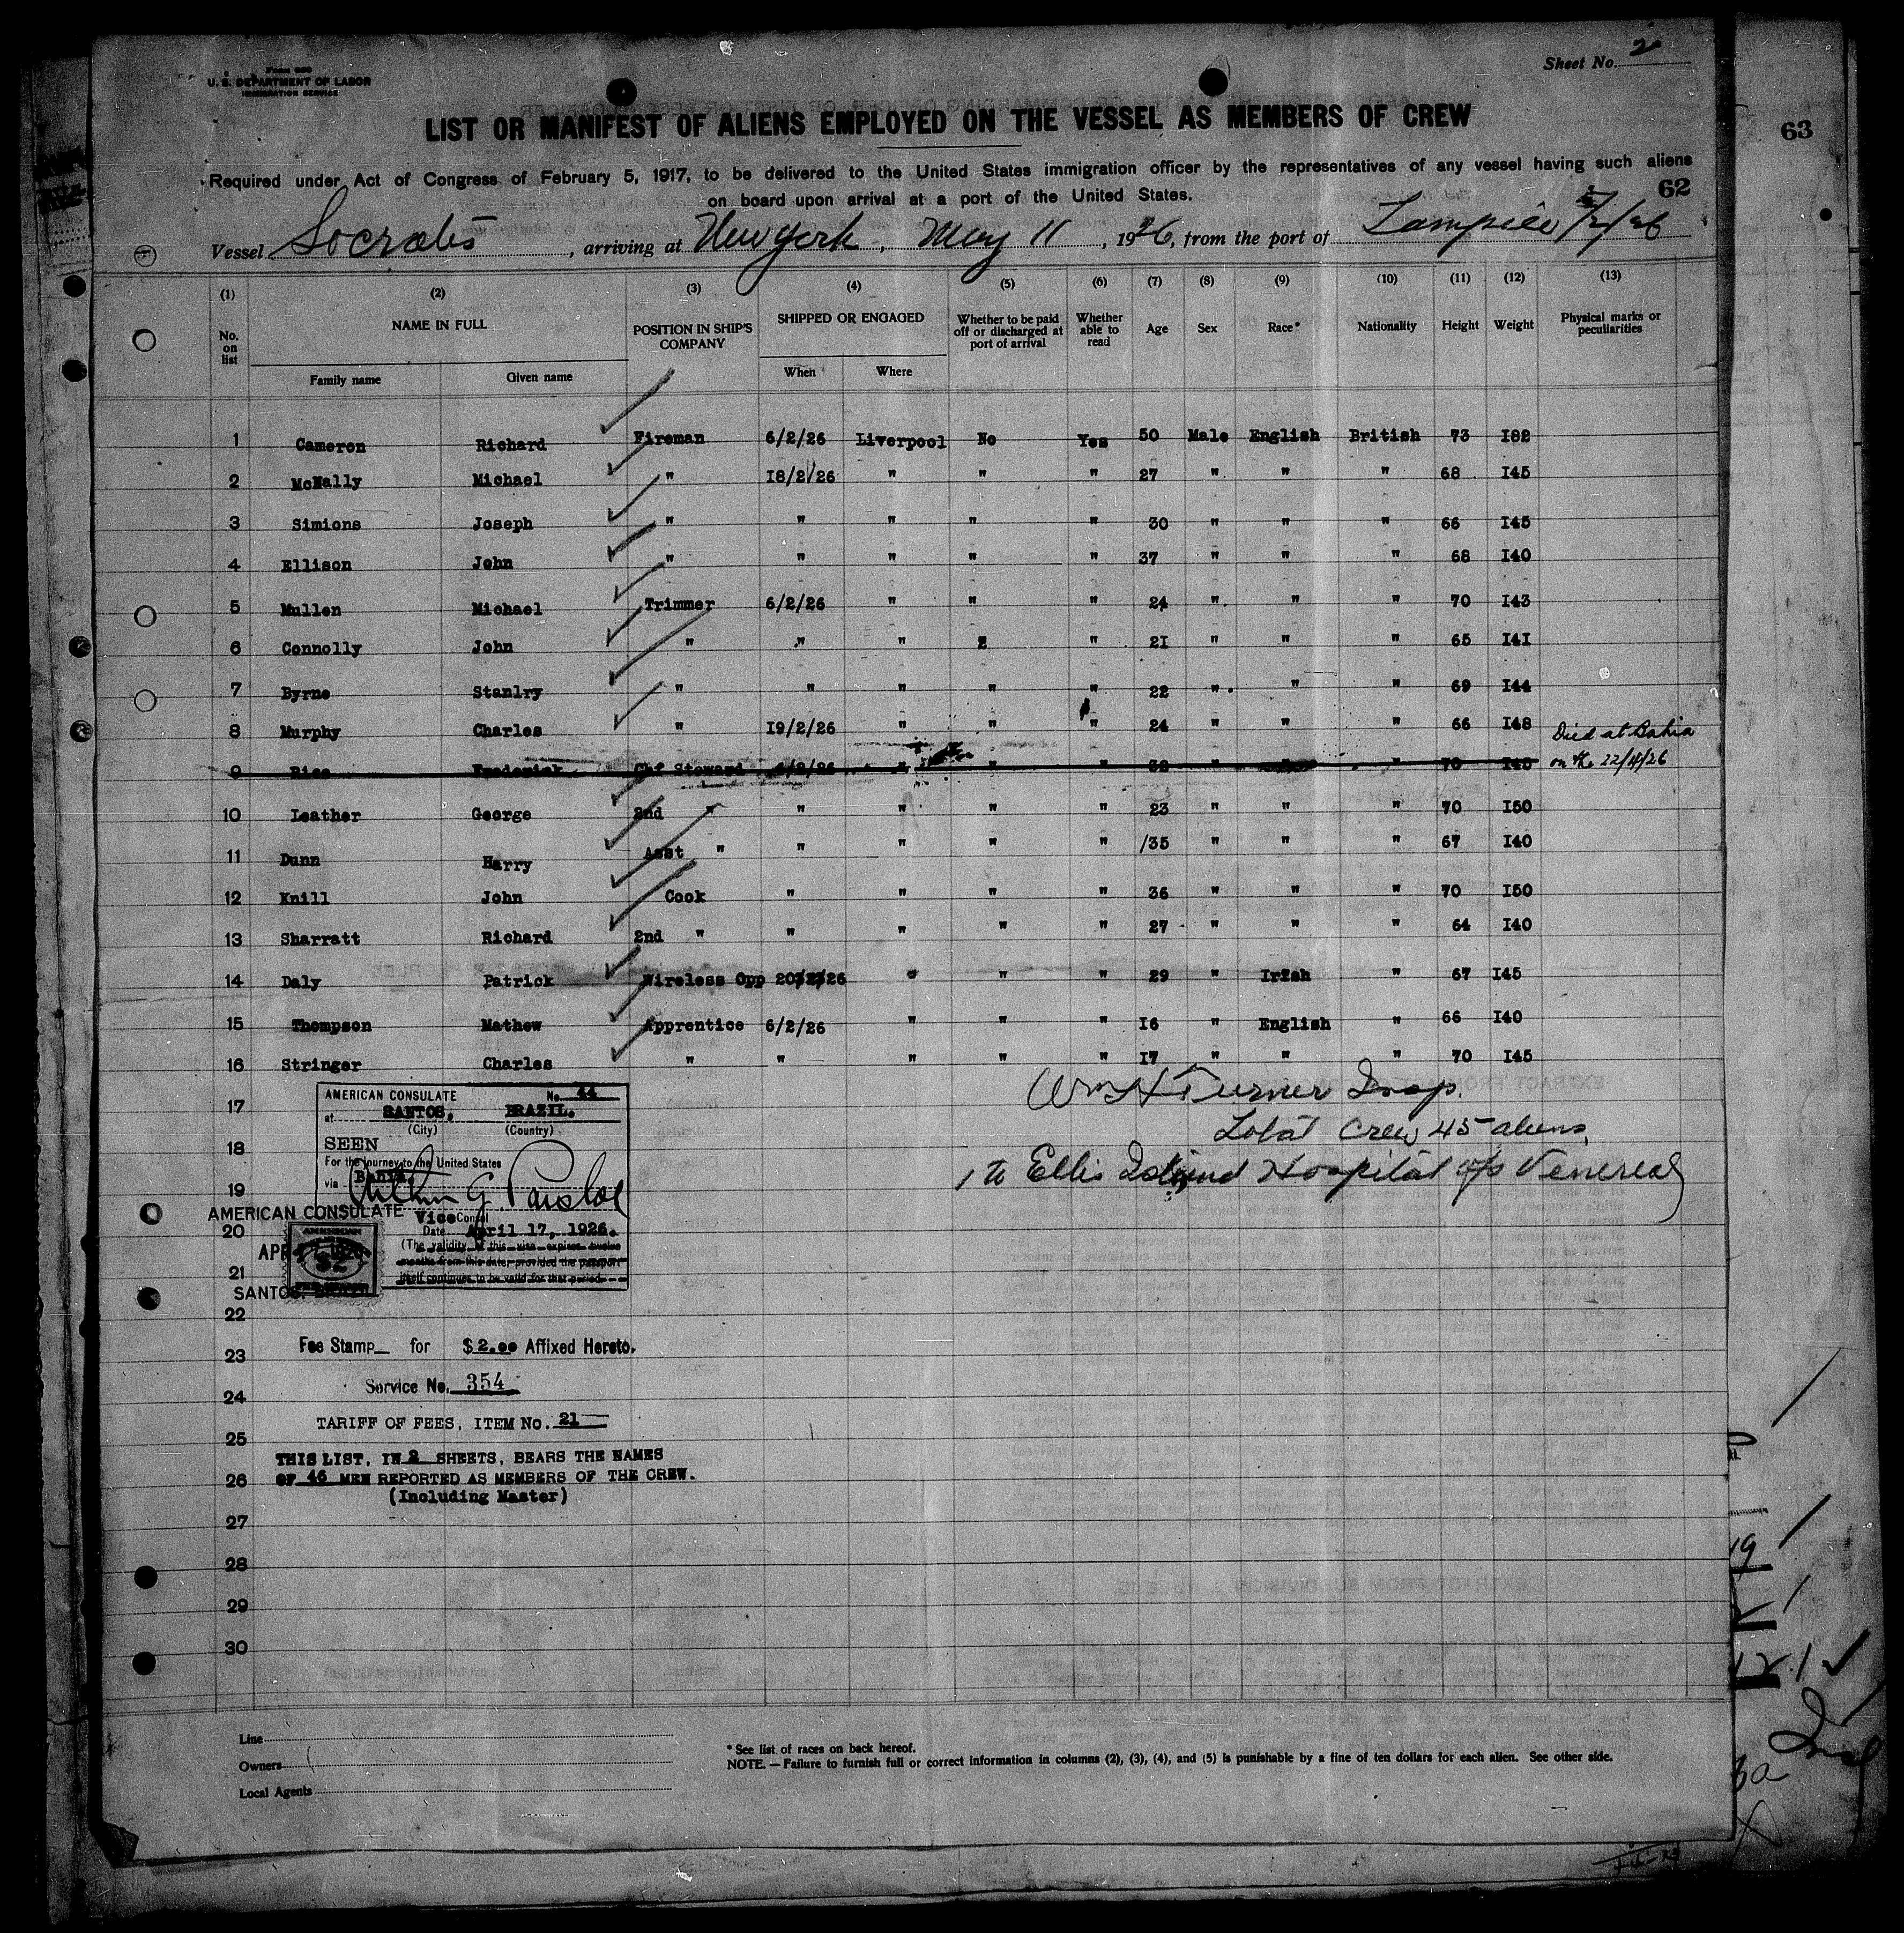 Form 680
U. S. DEPARTMENT OF LABOR
IMMIGRATION SERVICE
Sheet No. 2
63
LIST OR MANIFEST OF ALIENS EMPLOYED ON THE VESSEL AS MEMBERS OF CREW
Required under Act of Congress of February 5, 1917, to be delivered to the United States immigration officer by the representatives of any vessel having such aliens
on board upon arrival at a port of the United States.
62
Vessel Socrates, arriving at New York, May 11, 1926, from the port of
(1) (2) (3) (4) (5) (6) (7) (8) (9) (10) (11) (12) (13)
No. on list NAME IN FULL POSITION IN SHIP'S COMPANY SHIPPED OR ENGAGED Whether to be paid off or discharged at port of arrival Whether able to read Age Sex Race* Nationality Height Weight Physical marks or peculiarities
Family name Given name When Where
1 Cameron Richard Fireman 6/2/26 Liverpool No Yes 50 Male English British 73 I82
2 McNally Michael " I8/2/26 " " " 27 " " " 68 I45
3 Simions Joseph " " " " " 30 " " " 66 I45
4 Ellison John " " " " " 37 " " " 68 I40
5 Mullen Michael Trimmer 6/2/26 " " " 24 " " " 70 I43
6 Connolly John " " " 2 " 2I " " " 65 I4I
7 Byrne Stanlry " " " " " 22 " " " 69 I44
8 Murphy Charles " I9/2/26 " " " 24 " " " 66 I48
Died at Bahia
9 Rice Frederick Chf Steward 6/2/26 " " " " " 70 on the 22/4/26
10 Leather George 2nd " " " " " 23 " " " 70 I50
11 Dunn Harry Asst " " " " " /35 " " " 67 I40
12 Knill John Cook " " " " 36 " " " 70 I50
13 Sharratt Richard 2nd " " " " " 27 " " " 64 I40
14 Daly Patrick Wireless Opp 20/2/26 " " " 29 " Irish " 67 I45
15 Thompson Mathew Apprentice 6/2/26 " " " I6 " English " 66 I40
16 Stringer Charles " " " " " I7 " " " 70 I45
Wm H Turner Insp.
Total crew 45 aliens
1 to Ellis Island Hospital a/c Venereal
17
18
19
20
21
22
23
24
25
26
27
28
29
30
AMERICAN CONSULATE No. 44
at SANTOS, BRAZIL.
(City) (Country)
SEEN
For the journey to the United States
via Bahia.
Arthur G. Parsloe
Vice Consul
AMERICAN CONSULATE
Date April 17, 1926.
(The validity of this visa expires twelve
months from this date, provided the passport
itself continues to be valid for that period.
APR 17 1926
SANTOS, BRAZIL
Fee Stamp for $2.00 Affixed Hereto.
Service No. 354
TARIFF OF FEES, ITEM No. 21
THIS LIST, IN 2 SHEETS, BEARS THE NAMES
OF 46 MEN REPORTED AS MEMBERS OF THE CREW.
(Including Master)
Line
Owners
Local Agents
* See list of races on back hereof.
NOTE.—Failure to furnish full or correct information in columns (2), (3), (4), and (5) is punishable by a fine of ten dollars for each alien. See other side.